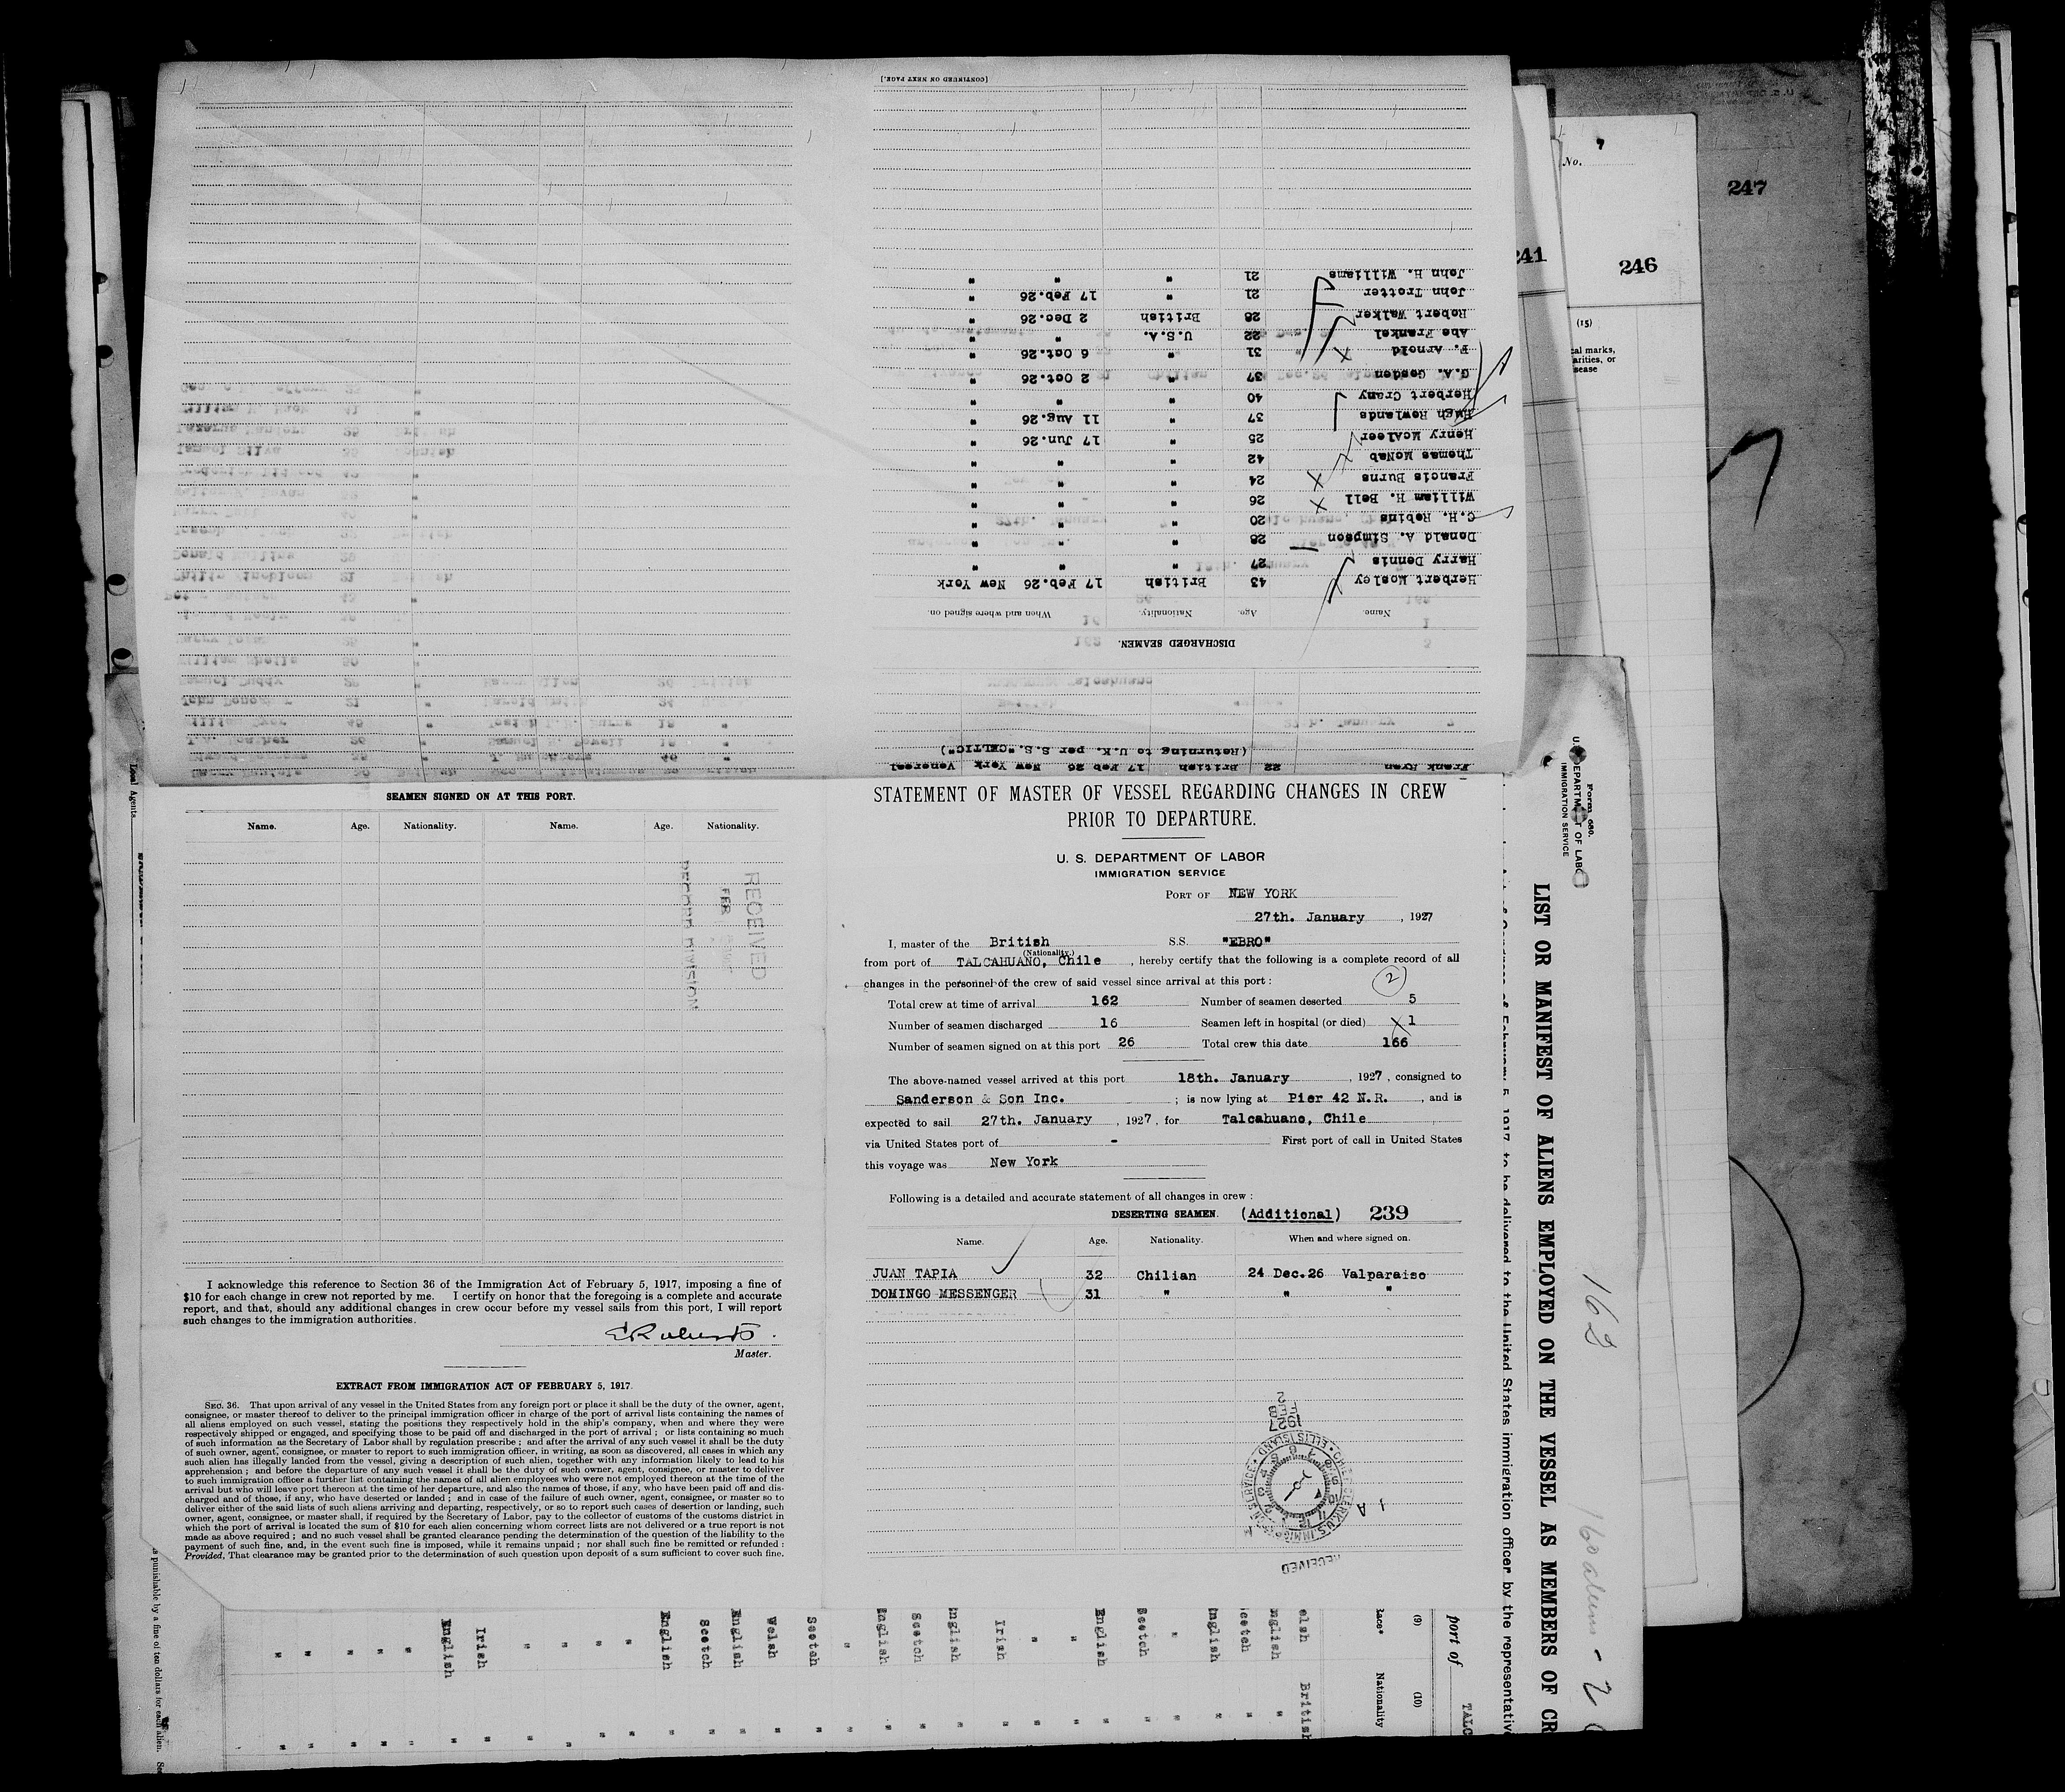 STATEMENT OF MASTER OF VESSEL REGARDING CHANGES IN CREW
PRIOR TO DEPARTURE.
U. S. DEPARTMENT OF LABOR
IMMIGRATION SERVICE
PORT OF NEW YORK
27th. January , 1927
I, master of the British S.S. "EBRO"
(Nationality.)
from port of TALCAHUANO, Chile , hereby certify that the following is a complete record of all
changes in the personnel of the crew of said vessel since arrival at this port :
2
Total crew at time of arrival 162 Number of seamen deserted 5
Number of seamen discharged 16 Seamen left in hospital (or died) X 1
Number of seamen signed on at this port 26 Total crew this date 166
The above-named vessel arrived at this port 18th. January , 1927 , consigned to
Sanderson & Son Inc. ; is now lying at Pier 42 N.R. , and is
expected to sail 27th. January , 1927 , for Talcahuano, Chile
via United States port of - First port of call in United States
this voyage was New York
Following is a detailed and accurate statement of all changes in crew :
DESERTING SEAMEN. (Additional) 239
Name. Age. Nationality. When and where signed on.
JUAN TAPIA 32 Chilian 24 Dec.26 Valparaiso
DOMINGO MESSENGER 31 " " "
1927
FEB
2
RECEIVED
ELLIS ISLAND
Frank Ryan 22 British 17 Feb 26 New York Venereal
(Returning to U.K. per S.S. "CELTIC")
DISCHARGED SEAMEN.
Name. Age. Nationality. When and where signed on.
Herbert Mosley 43 British 17 Feb.26 New York
Harry Dennis 27 " " "
Donald A. Simpson 28 " " "
C.H. Robins 20 " " "
William H. Bell 26 " " "
Francis Burns 24 " " "
Thomas McNab 42 " " "
Henry McAleer 25 " 17 Jun.26 "
Hugh Rowlands 37 " 11 Aug.26 "
Herbert Crany 40 " " "
G.A. Gosden 37 " 2 Oct.26 "
F. Arnold 31 " 6 Oct.26 "
Abe Frankel 22 U.S.A. " "
Robert Walker 28 British 2 Dec.26 "
John Trotter 21 " 17 Feb.26 "
John H. Williams 21 " " "
[CONTINUED ON NEXT PAGE.]
SEAMEN SIGNED ON AT THIS PORT.
Name. Age. Nationality. Name. Age. Nationality.
RECEIVED
FEB
RECORD DIVISION
I acknowledge this reference to Section 36 of the Immigration Act of February 5, 1917, imposing a fine of
$10 for each change in crew not reported by me. I certify on honor that the foregoing is a complete and accurate
report, and that, should any additional changes in crew occur before my vessel sails from this port, I will report
such changes to the immigration authorities.
E Roberts .
Master.
EXTRACT FROM IMMIGRATION ACT OF FEBRUARY 5, 1917.
SEC. 36. That upon arrival of any vessel in the United States from any foreign port or place it shall be the duty of the owner, agent,
consignee, or master thereof to deliver to the principal immigration officer in charge of the port of arrival lists containing the names of
all aliens employed on such vessel, stating the positions they respectively hold in the ship's company, when and where they were
respectively shipped or engaged, and specifying those to be paid off and discharged in the port of arrival ; or lists containing so much
of such information as the Secretary of Labor shall by regulation prescribe ; and after the arrival of any such vessel it shall be the duty
of such owner, agent, consignee, or master to report to such immigration officer, in writing, as soon as discovered, all cases in which any
such alien has illegally landed from the vessel, giving a description of such alien, together with any information likely to lead to his
apprehension ; and before the departure of any such vessel it shall be the duty of such owner, agent, consignee, or master to deliver
to such immigration officer a further list containing the names of all alien employees who were not employed thereon at the time of the
arrival but who will leave port thereon at the time of her departure, and also the names of those, if any, who have been paid off and dis-
charged and of those, if any, who have deserted or landed ; and in case of the failure of such owner, agent, consignee, or master so to
deliver either of the said lists of such aliens arriving and departing, respectively, or so to report such cases of desertion or landing, such
owner, agent, consignee, or master, shall, if required by the Secretary of Labor, pay to the collector of customs of the customs district in
which the port of arrival is located the sum of $10 for each alien concerning whom correct lists are not delivered or a true report is not
made as above required ; and no such vessel shall be granted clearance pending the determination of the question of the liability to the
payment of such fine, and, in the event such fine is imposed, while it remains unpaid ; nor shall such fine be remitted or refunded :
Provided, That clearance may be granted prior to the determination of such question upon deposit of a sum sufficient to cover such fine.
Form 680.
U. S. DEPARTMENT OF LABOR
IMMIGRATION SERVICE
LIST OR MANIFEST OF ALIENS EMPLOYED ON THE VESSEL AS MEMBERS OF CR
1917, to be delivered to the United States immigration officer by the representative
162
160 aliens - 2
port of TALC
(9) (10)
Race* Nationality
Welsh British
English
Scotch
English
"
Scotch
English
"
"
Irish
English
Scotch
English
"
Scotch
Welsh
English
Scotch
English
"
"
"
"
Irish
English
"
"
"
"
"
Local Agents
is punishable by a fine of ten dollars for each alien.
No. 7
241
246
247
(15)
cal marks,
arities, or
sease